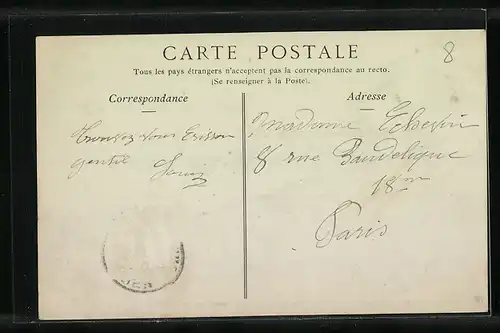 8
CARTE POSTALE
Tous les pays étrangers n'acceptent pas la correspondance au recto.
(Se renseigner à la Poste).
Correspondance
Adresse
Trouvez vous
gentil Louis
Madame
8 rue Baudelique
18me
Paris